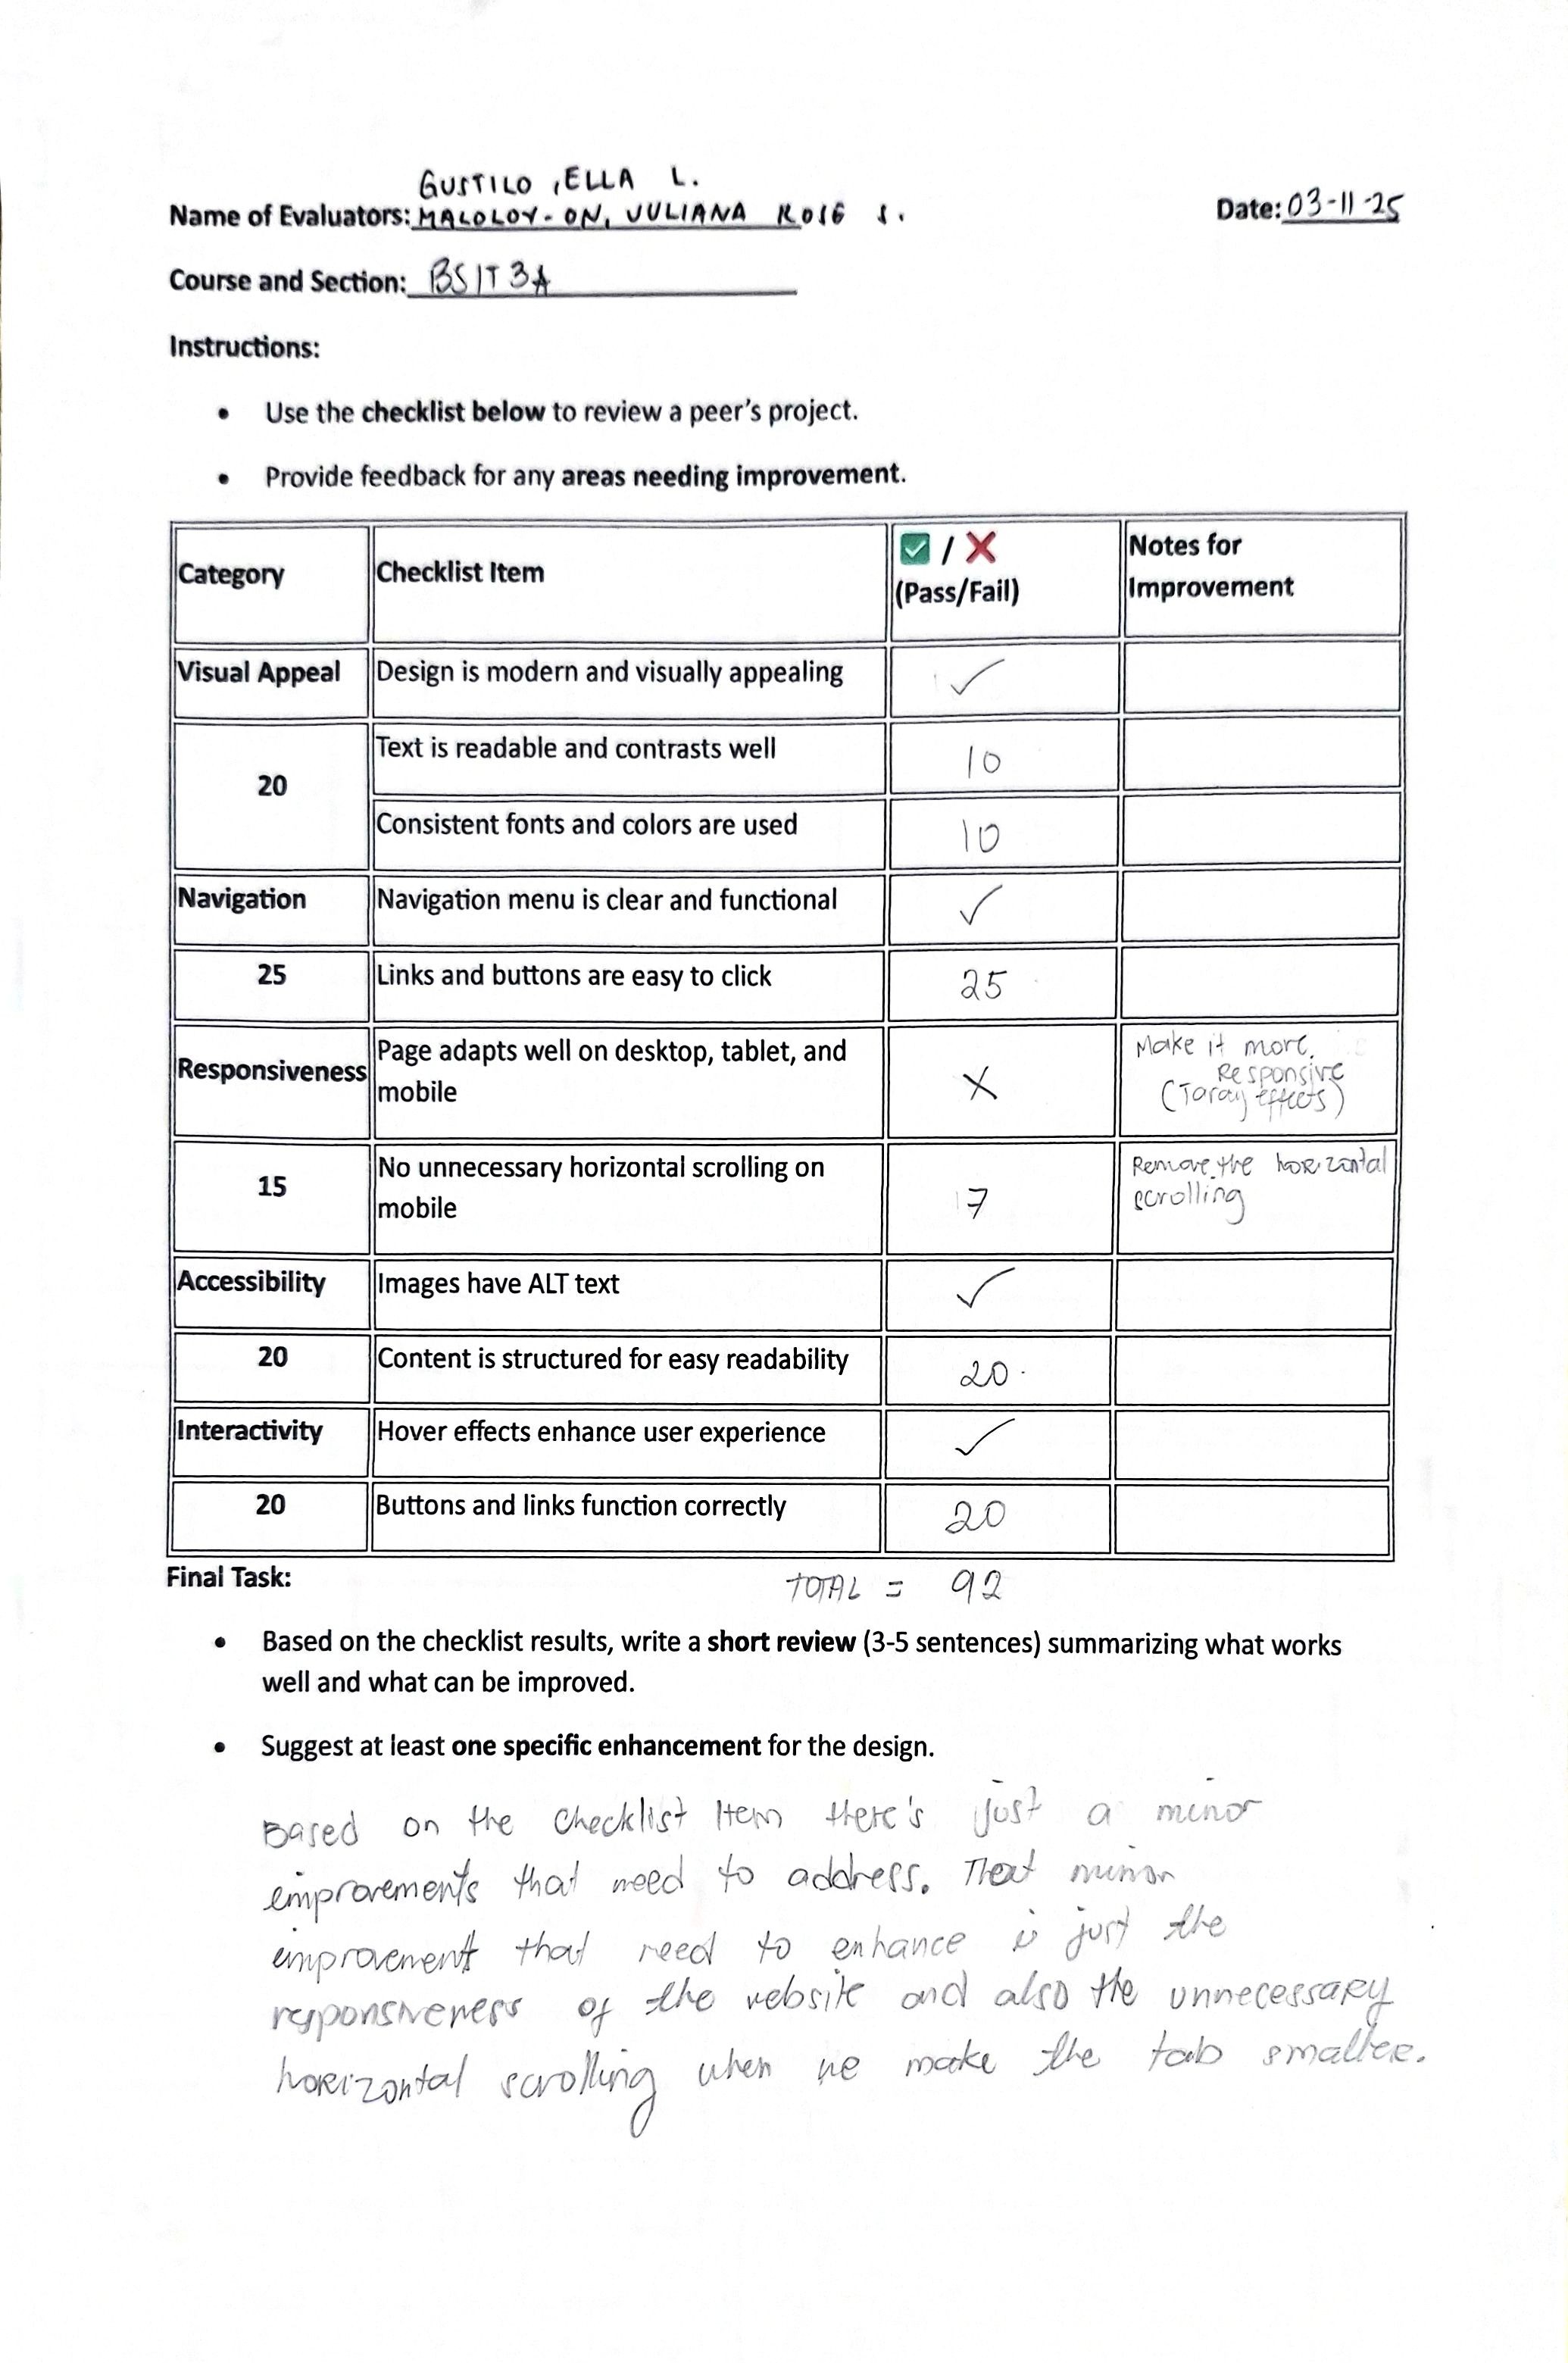 GUSTILO, ELLA L.
Name of Evaluators: MALOLOY-ON, JULIANA ROSE S.
Date: 03-11-25
Course and Section: BSIT 3A
Instructions:
• Use the checklist below to review a peer's project.
• Provide feedback for any areas needing improvement.
Category Checklist Item ✅ / ❌ (Pass/Fail) Notes for Improvement
Visual Appeal Design is modern and visually appealing ✓
20 Text is readable and contrasts well 10
Consistent fonts and colors are used 10
Navigation Navigation menu is clear and functional ✓
25 Links and buttons are easy to click 25
Responsiveness Page adapts well on desktop, tablet, and mobile X Make it more Responsive (Taray effects)
15 No unnecessary horizontal scrolling on mobile 7 Remove the horizontal scrolling
Accessibility Images have ALT text ✓
20 Content is structured for easy readability 20
Interactivity Hover effects enhance user experience ✓
20 Buttons and links function correctly 20
Final Task:
TOTAL = 92
• Based on the checklist results, write a short review (3-5 sentences) summarizing what works
well and what can be improved.
• Suggest at least one specific enhancement for the design.
Based on the checklist Item there's just a minor
improvements that need to address. That minor
improvement that need to enhance is just the
responsiveness of the website and also the unnecessary
horizontal scrolling when we make the tab smaller.